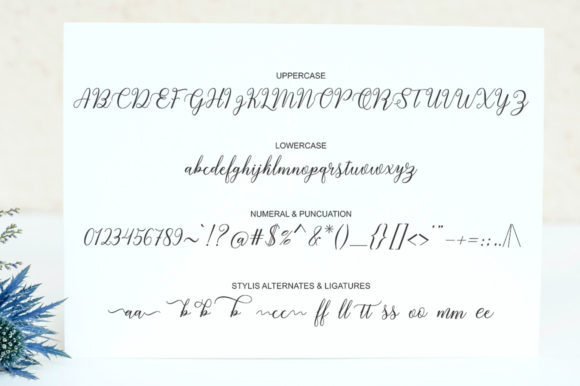 UPPERCASE
ABCDEFGHIJKLMNOPQRSTUVWXYZ
LOWERCASE
abcdefghijklmnopqrstuvwxyz
NUMERAL & PUNCUATION
0123456789~`!?@#$%^&*()_{}[]<>'"-+=:;../|\
STYLIS ALTERNATES & LIGATURES
aa b b b cc ff ll tt ss oo mm ee